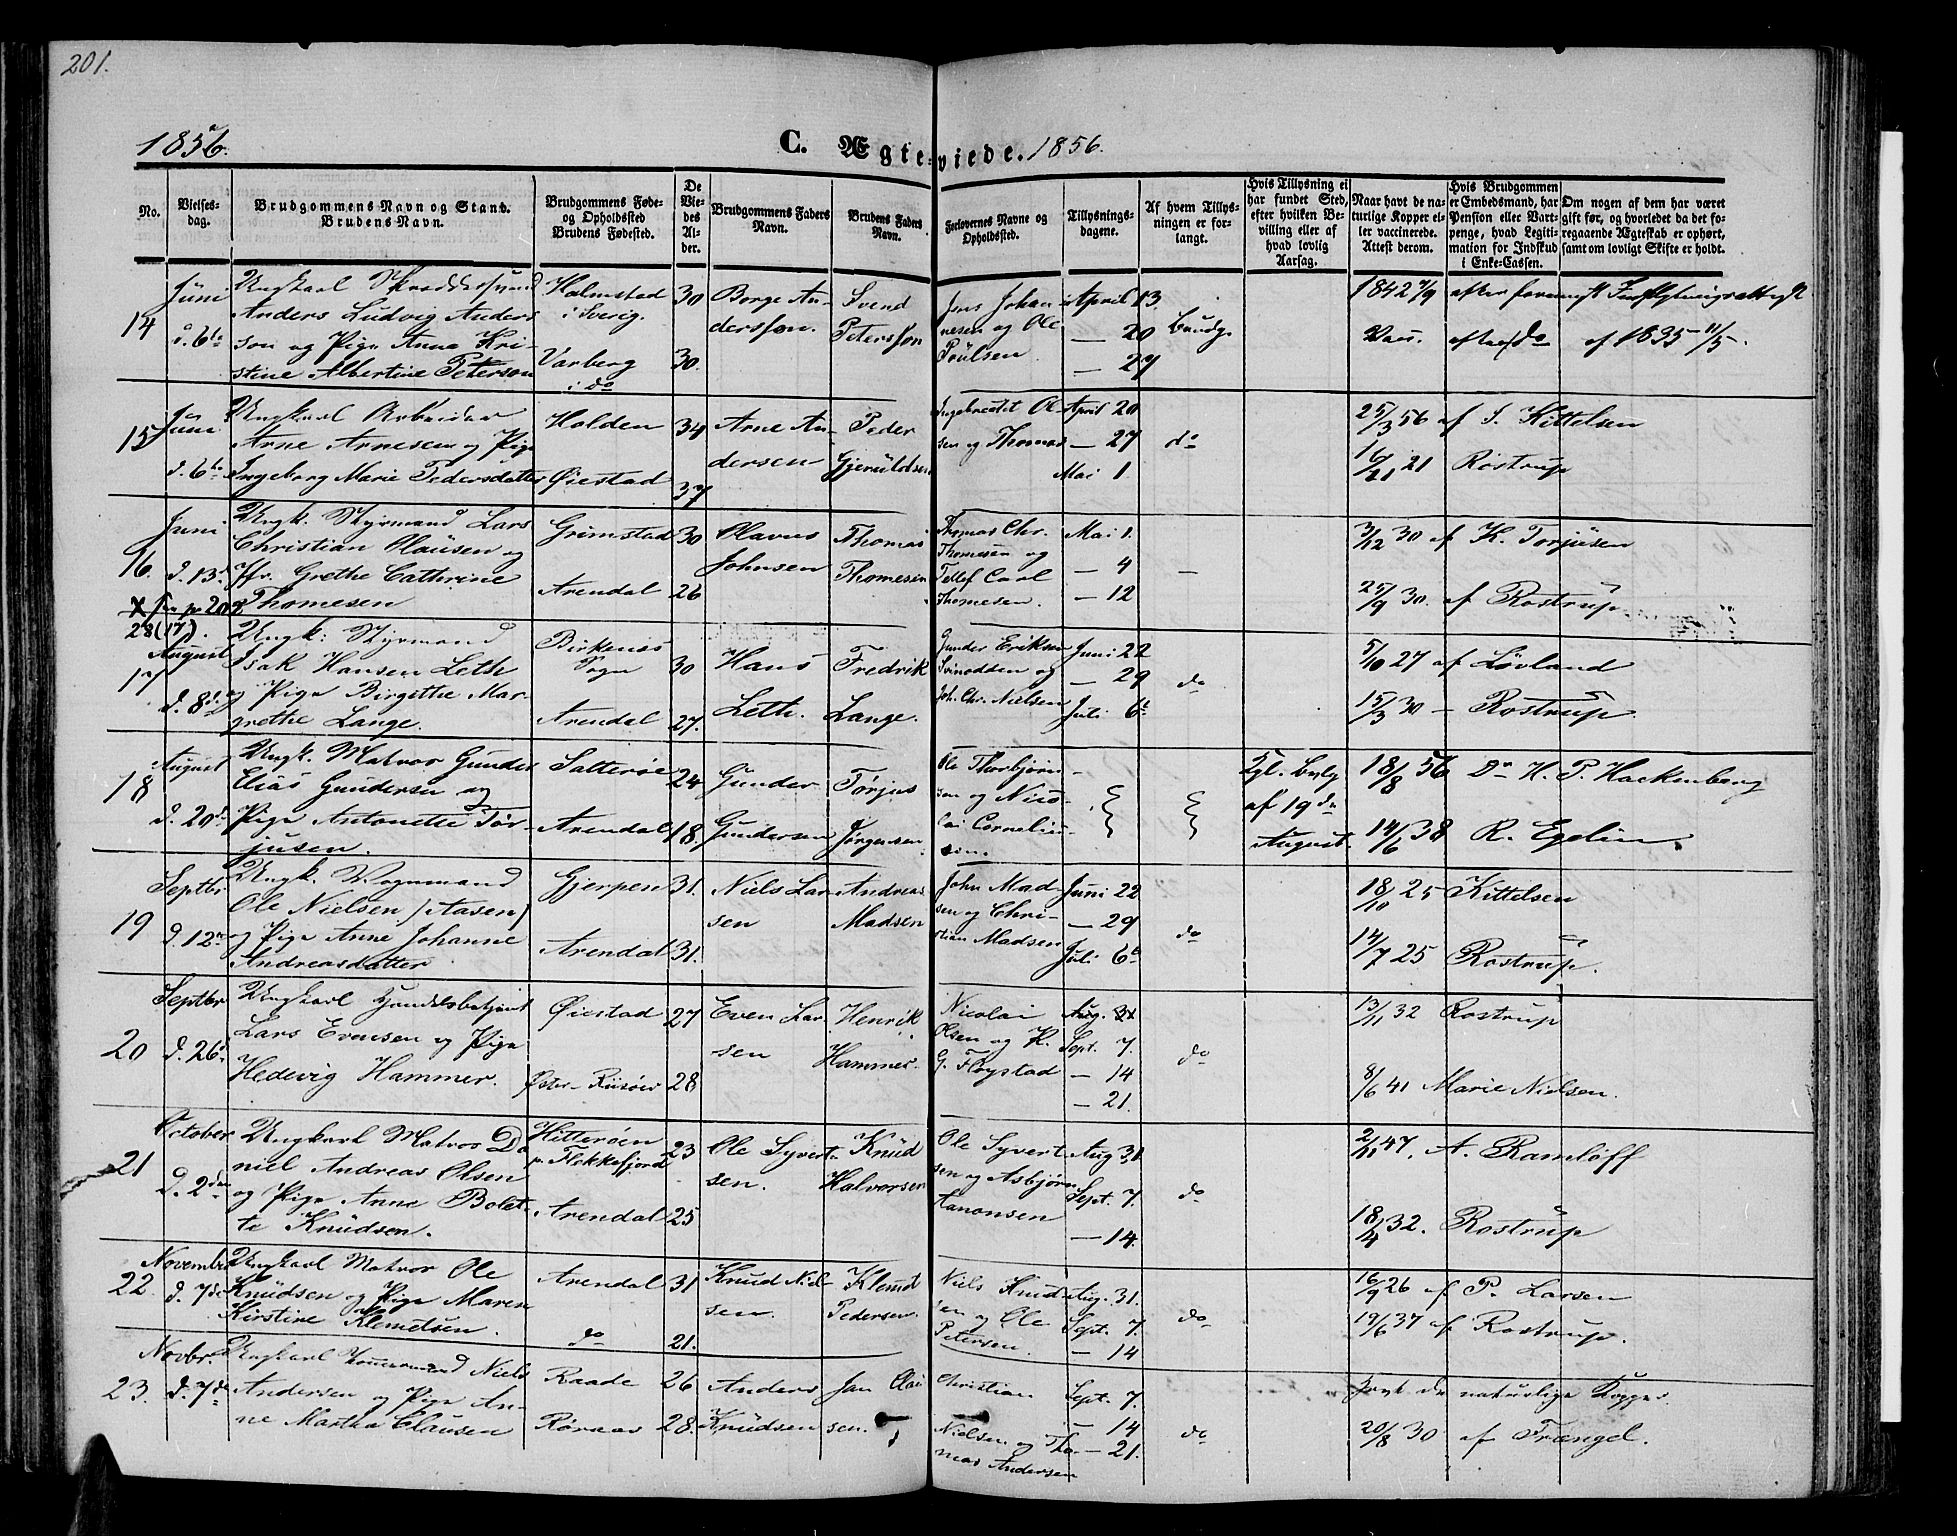 201.
1856.
C. Ægteviede. 1856.
No.
Vielsesdag.
Brudgommens Navn og Stand.
Brudens Navn.
Brudgommens Føde-
og Opholdssted
Brudens Fødested.
De
Vie-
des
Al-
der.
Brudgommens Faders
Navn.
Brudens Faders
Navn.
Forlovernes Navne og
Opholdssted.
Tillysnings-
dagene.
Af hvem Tillys-
ningen er for-
langt.
Hvis Tillysning ei
har fundet Sted,
efter hvilken Be-
villing eller af
hvad lovlig
Aarsag.
Naar havt de na-
turlige Kopper el-
ler vaccinerede.
Attest derom.
Hvis Brudgommen
er Embedsmand, har
Pension eller Vart-
penge, hvad Legiti-
mation for Indskud
i Enke-Cassen.
Om nogen af dem har været
gift før, og hvorledet da det fo-
regaaende Ægteskab er ophørt,
samt om lovligt Skifte er holdt.
14
Juni
d. 6te
Ungkarl Skräddersvend
Anders Ludvig Anders
son og Pige Anne Kri-
stine Albertine Peterson
Halmstad
i Sverig.
Varberg
i do
30
30.
Borge An-
dersson.
Svend
Petersson
Jens Johan-
nesen og Ole
Poulsen.
April 13.
— 20
— 27
Brudg.
1842 7/9
Vacc.
do
af 1835 11/5.
15
Juni
d. 6te
Ungkarl Arbeider
Arne Arnesen og Pige
Ingeborg Marie Pedersdatter
Holden
Øiestad
34
37
Arne An-
dersen
Peder
Gjeruldsen
Ingebretet Ol-
sen og Thomas
April 20
— 27
Mai 1
do
25/3 56 af I. Kittelsen
16/11 21 Rostrup
16.
Juni
d. 13de
Ungk. Styrmand Lars
Christian Olausen og
Jfr. Grethe Cathrine
Thomesen
Grimstad
Arendal
30
26
Olavus
Johnsen
Thomas
Thomesen
Thomas Chr.
Thomesen og
Tellef Carl
Thomesen.
Mai 1.
— 4
— 12
—
3/12 30 af K. Torjusen
25/9 30. af Rostrup
X p. 202
28 (17).
17
August
d. 8de
Ungk: Styrmand
Isak Hansen Leth
og Pige Birgitthe Mar-
grethe Lange.
Birkenes
Sogn
Arendal
30
27.
Hans
Leth.
Fredrik
Lange.
Gunder Eriksen
Svinodden og
Joh. Chr. Nielsen
Juni 22
— 29
Juli 6te
do
5/10 27 af Løvland
15/3 30 — Rostrup.
18
August
d. 20de
Ungk. Matros Gunder
Elias Gundersen og
Pige Antonette Tor-
jusen.
Salterøe
Arendal
24
18.
Gunder
Gundersen
Torjus
Jørgensen
Ole Thorbjørn-
sen og Nico-
lai Cornelius-
sen.
Kgl. Bevlg
af 19de
August.
18/8 56 Dr H. P. Hackenberg
14/6 38 R. Egelin.
19
Septbr
d. 12te
Ungk. Vognmand
Ole Nielsen (Aasen)
og Pige Anne Johanne
Andreasdatter
Gjerpen
Arendal
31.
31.
Niels Lar
sen
Andreas
Madsen
John Mad-
sen og Chri-
stian Madsen
Juni 22
— 29
Juli 6te
do
18/10 25 Kittelsen
14/7 25 Rostrup.
20
Septbr
d. 26de
Ungkarl Handelsbetjent
Lars Evensen og Pige
Hedevig Hammer.
Øiestad
Øster-Riisøer
27
28
Even Lar
sen
Henrik
Hammer.
Nicolai
Olsen og K.
G. Fløystad
Aug. 31
Sept. 7.
— 14
— 21.
do
13/11 32 Rostrup
8/6 41 Marie Nielsen.
21
October
d. 2den
Ungkarl Matros Da
niel Andreas Olsen
og Pige Anne Bolet-
te Knudsen.
Hitterøen
p. Flekkefjord
Arendal
23
25
Ole Syvert-
sen.
Knud
Halvorsen
Ole Syvert-
sen og Asbjørn
Aanonsen
Aug 31
Sept. 7
— 14.
do
2/11 47. A. Ramløff
18/4 32. Rostrup
22.
November
d. 7de
Ungkarl Matros Ole
Knudsen og Pige Maren
Kirstine Klemetsen.
Arendal
do
31
21.
Knud Niel-
sen.
Klemed
Pedersen.
Niels Knud-
sen og Ole
Petersen.
Aug. 31.
Sept. 7.
— 14
do
16/9 26 af P. Larsen
19/6 37 af Rostrup.
23.
Novbr.
d. 7de
Ungkarl Tømmermand Niels
Andersen og Pige An-
ne Martha Clausen
Raade
Røraas
26
28.
Anders
Knudsen
Jan Clau
sen.
Christian
Nielsen og Tho-
mas Andersen
Sept. 7.
— 14
— 21.
do
havt de naturlige Kopper
20/8 30 af Trangel.